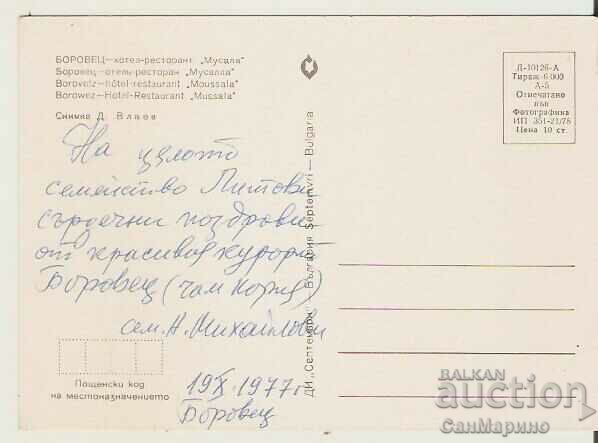 БОРОВЕЦ—хотел-ресторант „Мусала"
Боровец—отель-ресторан „Мусалла"
Borovetz—hôtel-restaurant „Moussala"
Borowez—Hotel-Restaurant „Mussala"
Снимка Д. Влаев
На цялото
семейство Питови
сърдечни поздрави
от красивия курорт
Боровец (чам кория)
сем. Н. Михайлови
19 X. 1977 г.
Боровец
Пощенски код
на местоназначението
ДИ „Септември" България Septemvri — Bulgaria
Д-10126-А
Тираж 6 000
А-5
Отпечатано
във
Фотографика
ИП 351-21/76
Цена 10 ст.
BALKAN
auction
СанМарино